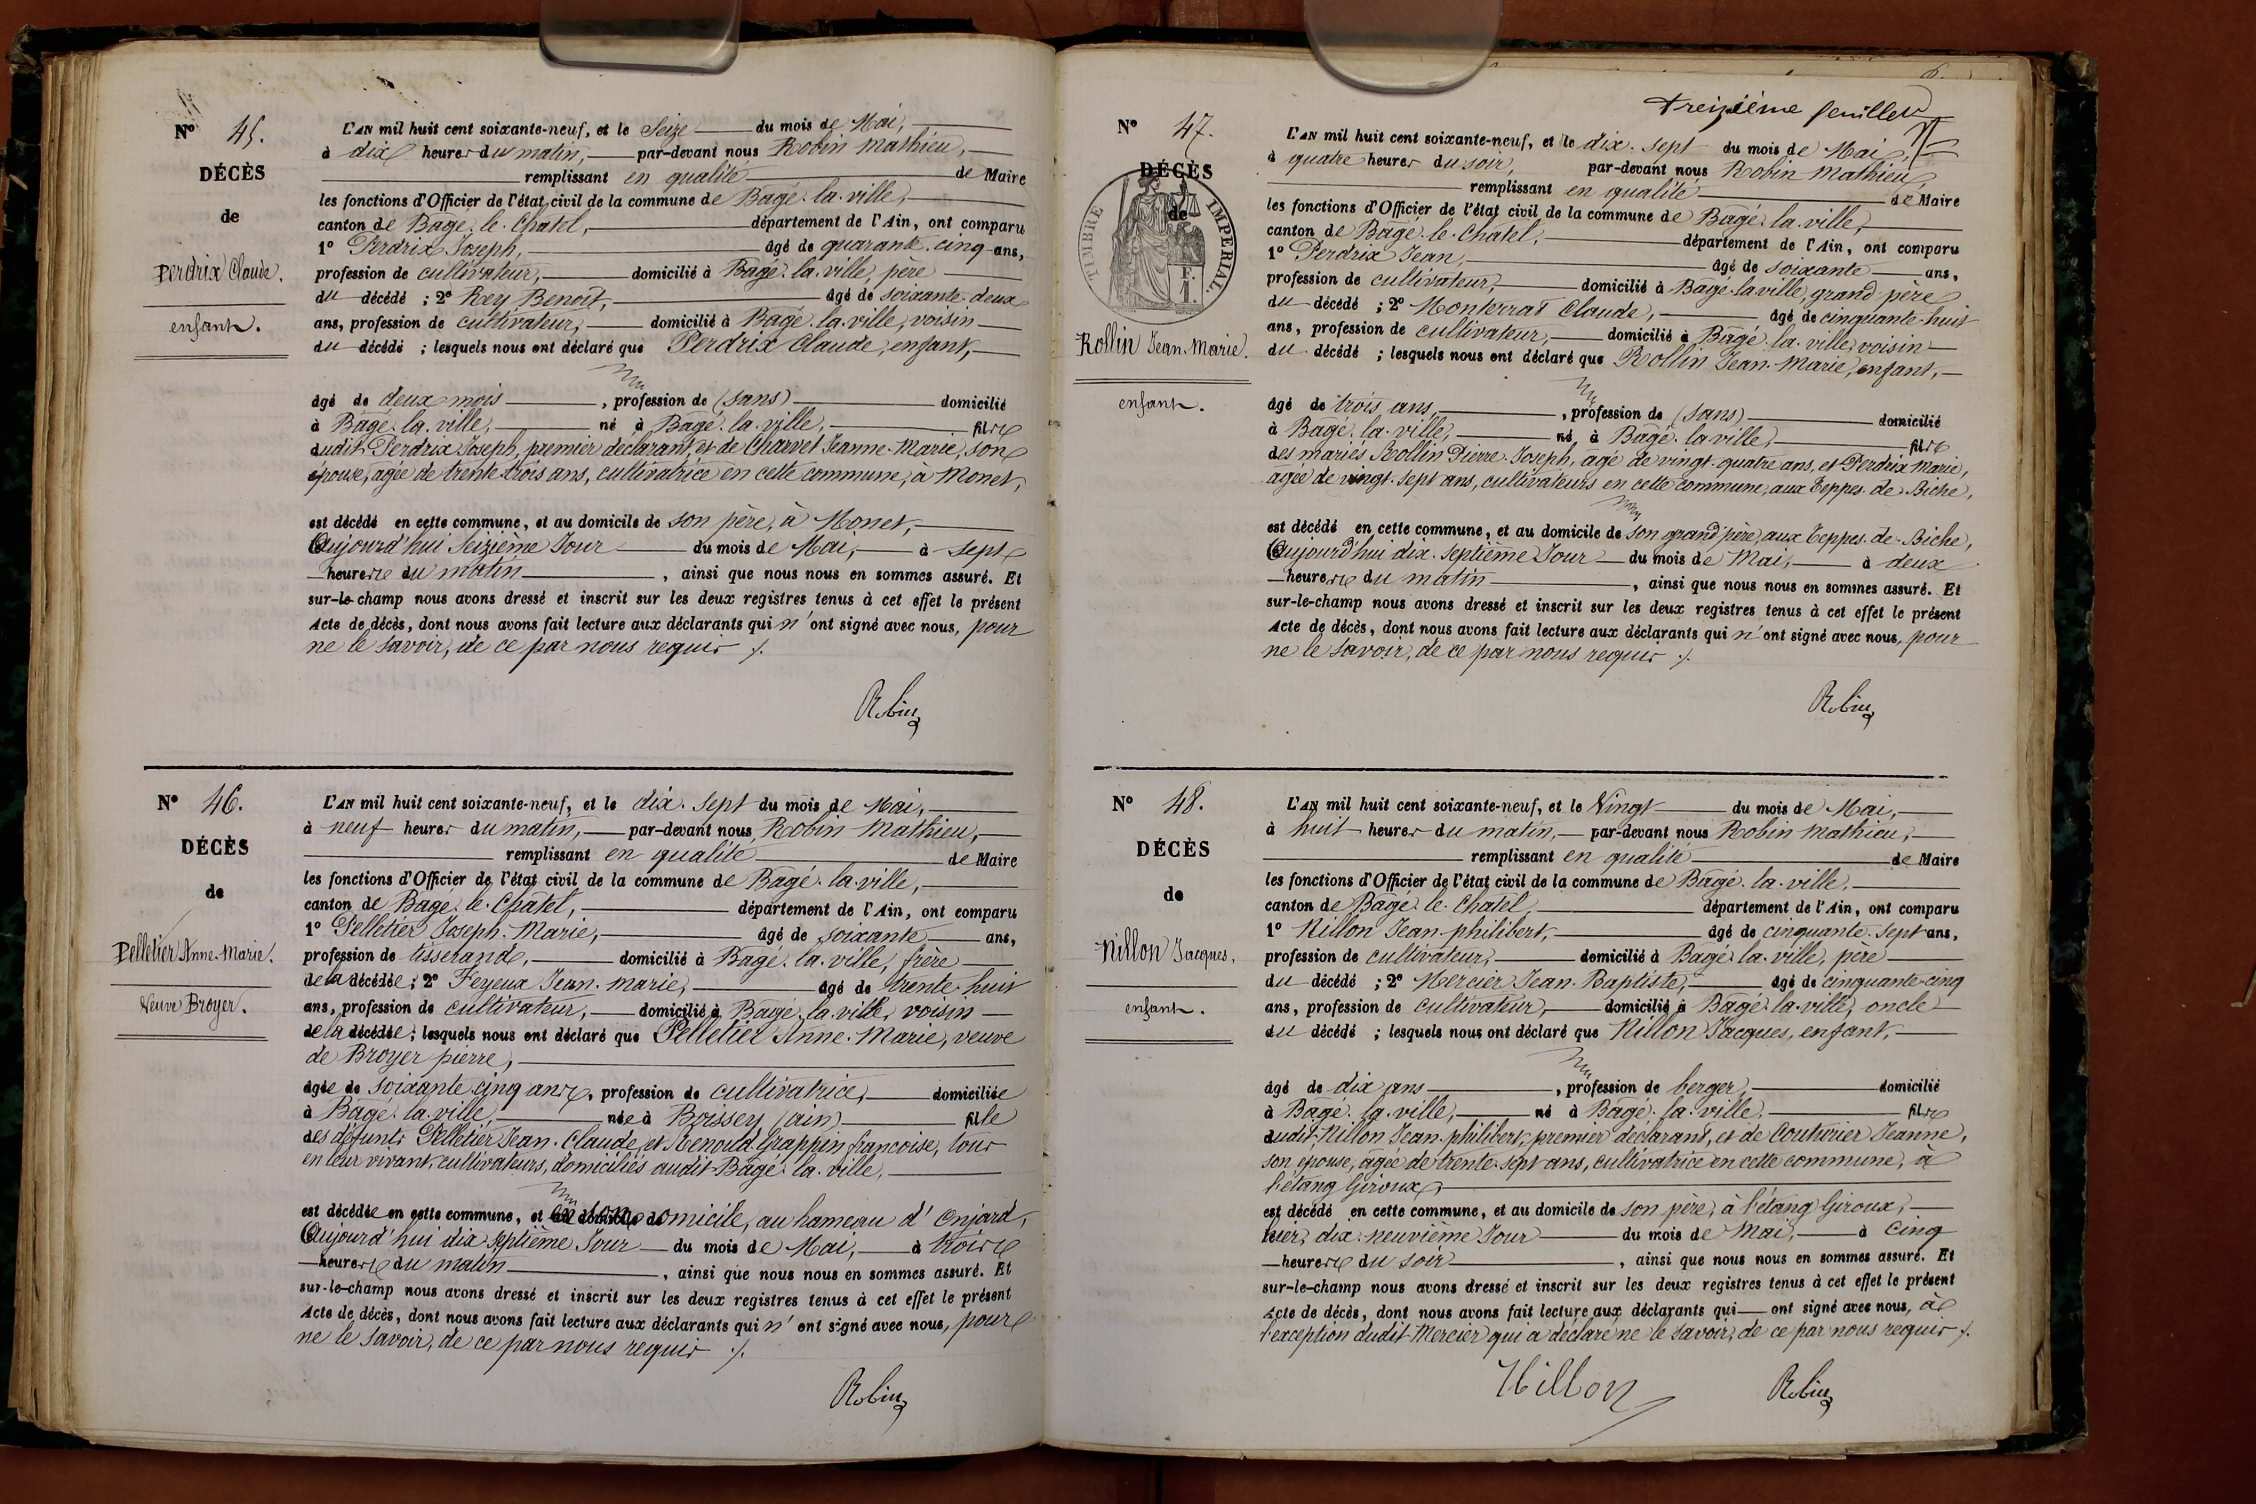 Nº 45.
DÉCÈS
de
Perdrix Claude.
enfant.
L'AN mil huit cent soixante-neuf, et le Seize du mois de Mai,
à dix heures du matin, par-devant nous Robin Mathieu,
remplissant en qualité de Maire
les fonctions d'Officier de l'état civil de la commune de Bagé-la-ville,
canton de Bagé-le-Chatel, département de l'Ain, ont comparu
1º Perdrix Joseph, âgé de quarante-cinq ans,
profession de cultivateur, domicilié à Bagé-la-ville, père
du décédé ; 2º Rey Benoît, âgé de soixante-deux
ans, profession de cultivateur, domicilié à Bagé-la-ville, voisin
du décédé ; lesquels nous ont déclaré que Perdrix Claude, enfant,
âgé de deux mois, profession de (sans) domicilié
à Bagé-la-ville, né à Bagé-la-ville, fils
dudit Perdrix Joseph, premier déclarant, et de Charvet Jeanne-Marie, son
épouse, agée de trente-trois ans, cultivatrice en cette commune, à Monet,
est décédé en cette commune, et au domicile de son père, à Monet,
Aujourd'hui Seizième Jour du mois de Mai, à sept
heures du matin, ainsi que nous nous en sommes assuré. Et
sur-le-champ nous avons dressé et inscrit sur les deux registres tenus à cet effet le présent
Acte de décès, dont nous avons fait lecture aux déclarants qui n'ont signé avec nous, pour
ne le savoir, de ce par nous requis ./.
Robin
Nº 46.
DÉCÈS
de
Pelletier Anne-Marie.
Veuve Broyer.
L'AN mil huit cent soixante-neuf, et le dix-sept du mois de Mai,
à neuf heures du matin, par-devant nous Robin Mathieu,
remplissant en qualité de Maire
les fonctions d'Officier de l'état civil de la commune de Bagé-la-ville,
canton de Bagé-le-Chatel, département de l'Ain, ont comparu
1º Pelletier Joseph-Marie, âgé de soixante ans,
profession de tisserand, domicilié à Bagé-la-ville, frère
de la décédée ; 2º Feyeux Jean-marie, âgé de trente-huit
ans, profession de cultivateur, domicilié à Bagé-la-ville, voisin
de la décédée ; lesquels nous ont déclaré que Pelletier Anne-Marie, veuve
de Broyer pierre,
âgée de soixante-cinq ans, profession de cultivatrice, domiciliée
à Bagé-la-ville, née à Boissey (ain) fille
des défunts Pelletier Jean-Claude, et Renould Grappin françoise, tous
en leur vivant, cultivateurs, domiciliés audit Bagé-la-ville,
est décédée en cette commune, et en son domicile, au hameau d'Onjard,
Aujourd'hui dix-septième Jour du mois de Mai, à trois
heures du matin, ainsi que nous nous en sommes assuré. Et
sur-le-champ nous avons dressé et inscrit sur les deux registres tenus à cet effet le présent
Acte de décès, dont nous avons fait lecture aux déclarants qui n'ont signé avec nous, pour
ne le savoir, de ce par nous requis ./.
Robin
treizième feuillet
Nº 47.
DÉCÈS
de
TIMBRE IMPERIAL
Rollin Jean-Marie.
enfant.
L'AN mil huit cent soixante-neuf, et le dix-sept du mois de Mai,
à quatre heures du soir, par-devant nous Robin Mathieu,
remplissant en qualité de Maire
les fonctions d'Officier de l'état civil de la commune de Bagé-la-ville,
canton de Bagé-le-Chatel, département de l'Ain, ont comparu
1º Perdrix Jean, âgé de soixante ans,
profession de cultivateur, domicilié à Bagé-la ville, grand-père
du décédé ; 2º Monterrat Claude, âgé de cinquante-huit
ans, profession de cultivateur, domicilié à Bagé-la-ville, voisin
du décédé ; lesquels nous ont déclaré que Rollin Jean-Marie, enfant,
âgé de trois ans, profession de (sans) domicilié
à Bagé-la-ville, né à Bagé-la ville, fils
des mariés Rollin Pierre-Joseph, agé de vingt-quatre ans, et Perdrix Marie,
agée de vingt-sept ans, cultivateurs en cette commune, aux Teppes-de-Biche,
est décédé en cette commune, et au domicile de son grand'père, aux Teppes-de-Biche,
Aujourd'hui dix-septième Jour du mois de Mai, à deux
heures du matin, ainsi que nous nous en sommes assuré. Et
sur-le-champ nous avons dressé et inscrit sur les deux registres tenus à cet effet le présent
Acte de décès, dont nous avons fait lecture aux déclarants qui n'ont signé avec nous, pour
ne le savoir, de ce par nous requis ./.
Robin
Nº 48.
DÉCÈS
de
Nillon Jacques,
enfant.
L'AN mil huit cent soixante-neuf, et le Vingt du mois de Mai,
à huit heures du matin, par-devant nous Robin Mathieu,
remplissant en qualité de Maire
les fonctions d'Officier de l'état civil de la commune de Bagé-la-ville,
canton de Bagé-le-Chatel, département de l'Ain, ont comparu
1º Nillon Jean-philibert, âgé de cinquante-sept ans,
profession de cultivateur, domicilié à Bagé-la-ville, père
du décédé ; 2º Mercier Jean-Baptiste, âgé de cinquante-cinq
ans, profession de cultivateur, domicilié à Bagé-la-ville, oncle
du décédé ; lesquels nous ont déclaré que Nillon Jacques, enfant,
âgé de dix ans, profession de berger, domicilié
à Bagé-la-ville, né à Bagé-la-ville, fils
dudit Nillon Jean-philibert, premier déclarant, et de Couturier Jeanne,
son épouse, agée de trente-sept ans, cultivatrice en cette commune, à
l'étang Giroux,
est décédé en cette commune, et au domicile de son père, à l'étang Giroux,
hier, dix-neuvième Jour du mois de Mai, à cinq
heures du soir, ainsi que nous nous en sommes assuré. Et
sur-le-champ nous avons dressé et inscrit sur les deux registres tenus à cet effet le présent
Acte de décès, dont nous avons fait lecture aux déclarants qui ont signé avec nous, à
l'exception dudit Mercier qui a déclaré ne le savoir, de ce par nous requis ./.
Nillon Robin